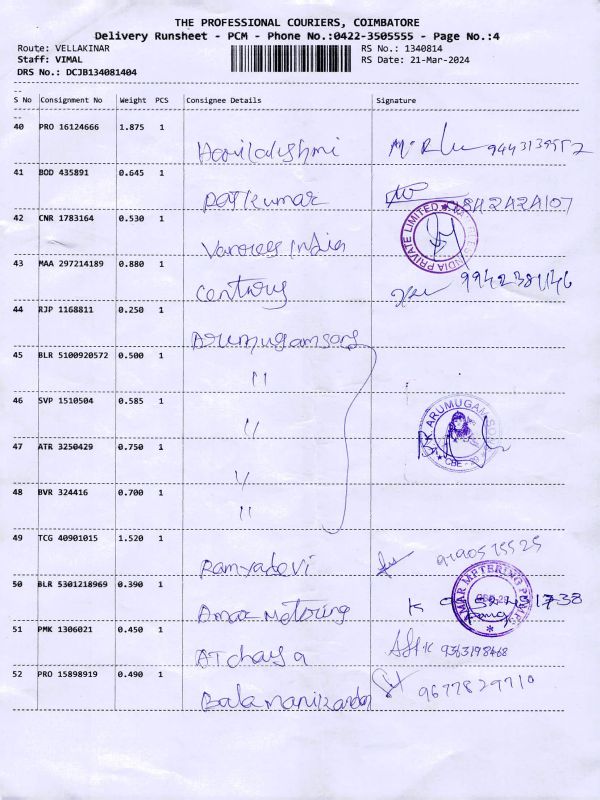 THE PROFESSIONAL COURIERS, COIMBATORE
Delivery Runsheet - PCM - Phone No.:0422-3505555 - Page No.:4
Route: VELLAKINAR RS No.: 1340814
Staff: VIMAL RS Date: 21-Mar-2024
DRS No.: DCJB134081404
S No Consignment No Weight PCS Consignee Details Signature
40 PRO 16124666 1.875 1
Harilakshmi 9443139552
41 BOD 435891 0.645 1
Rajkumar
42 CNR 1783164 0.530 1
India PRIVATE LIMITED
43 MAA 297214189 0.880 1
Century
44 RJP 1168811 0.250 1
Arumugamsons
45 BLR 5100920572 0.500 1
"
46 SVP 1510504 0.585 1
" ARUMUGAM
47 ATR 3250429 0.750 1
" CBE
48 BVR 324416 0.700 1
"
49 TCG 40901015 1.520 1
Ramyadevi
50 BLR 5301218969 0.390 1
Amar Metering AMAR METERING PUMPS
51 PMK 1306021 0.450 1
Atchaya 9363198468
52 PRO 15898919 0.490 1
Balamanikandan 9677829710